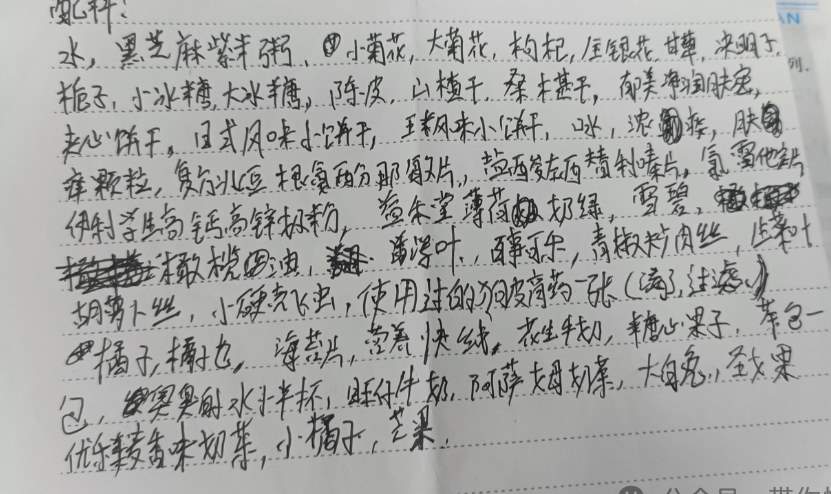 配料:
水,黑芝麻紫米粥,小菊花,大菊花,枸杞,金银花,甘草,决明子,
栀子,小冰糖,大冰糖,陈皮,山楂干,桑椹干,郁美净润肤霜,
夹心饼干,日式风味小饼干,风味小饼干,口水,
痒颗粒,复方北豆根氨酚那敏片,盐酸左西替利嗪片,氯雷他定片
伊利学生高钙高锌奶粉,益禾堂薄荷奶绿,雪碧,
橄榄油,番泻叶,百事可乐,青椒炒肉丝,生菜叶
胡萝卜丝,小硬壳飞虫,使用过的狗皮膏药一张(滴了,过滤)
橘子,橘子皮,海苔片,营养快线,花生牛奶,糖心果子,茶包一
包,臭臭的水小半杯,旺仔牛奶,阿萨姆奶茶,大白兔,圣女果
优乐麦香味奶茶,小橘子,芒果.
列.
N